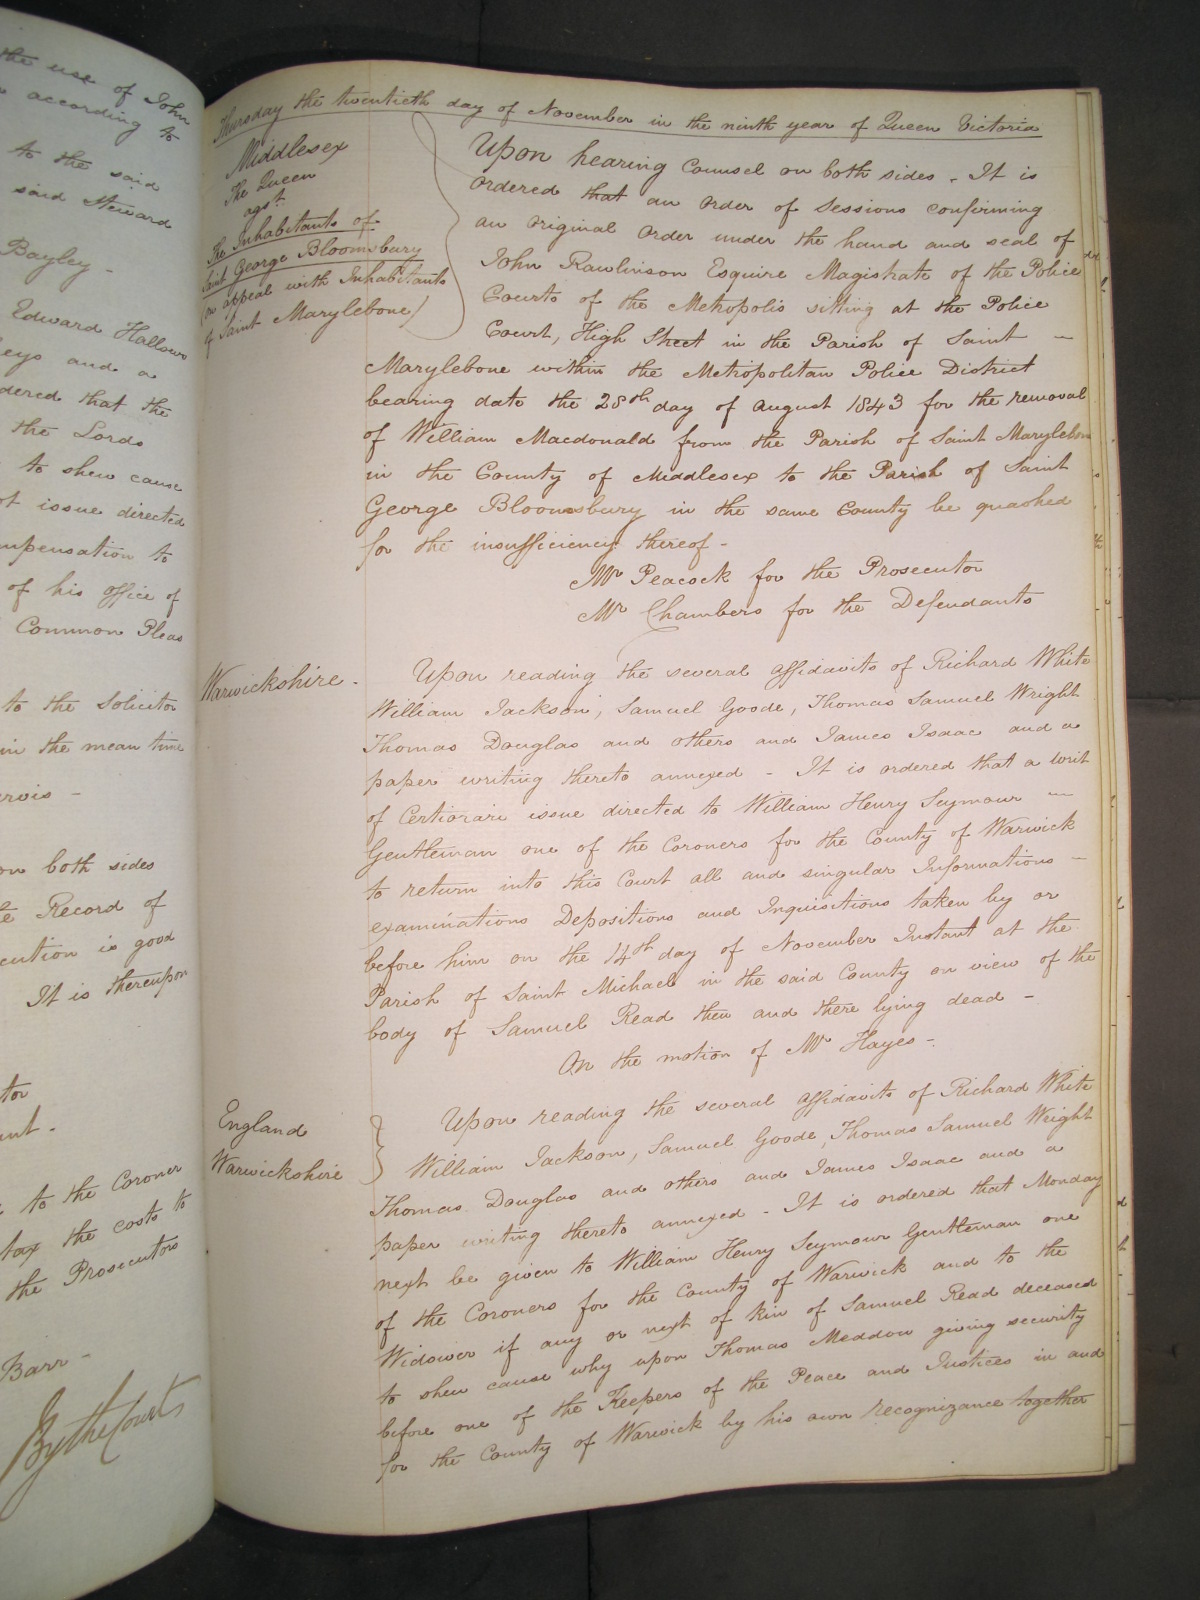 the use of John
according to
to the said
said Steward
Bayley -
Edward Hallows
leys and a
dered that the
the Lords
to shew cause
ot issue directed
mpensation to
of his office of
Common Pleas
to the solicitor
in the mean time
ervis -
on both sides
te Record of
cution is good
It is thereupon
tor
ant.
to the Coroner
tax the costs to
the Prosecutors
Barr -
By the Court
Thursday the twentieth day of November in the ninth year of Queen Victoria
Middlesex
The Queen
agst.
The Inhabitants of
Saint George Bloomsbury
(on appeal with Inhabitants
of Saint Marylebone)
Upon hearing Counsel on both sides - It is
ordered that an order of Sessions confirming
an original Order under the hand and seal of
John Rawlinson Esquire Magistrate of the Police
Courts of the Metropolis sitting at the Police
Court, High Street in the Parish of Saint —
Marylebone within the Metropolitan Police District
bearing date the 28th day of August 1843 for the removal
of William Macdonald from the Parish of Saint Marylebone
in the County of Middlesex to the Parish of Saint
George Bloomsbury in the same County be quashed
for the insufficiency thereof -
Mr Peacock for the Prosecutor
Mr Chambers for the Defendants
Warwickshire -
Upon reading the several affidavits of Richard White
William Jackson, Samuel Goode, Thomas Samuel Wright
Thomas Douglas and others and James Isaac and a
paper writing thereto annexed - It is ordered that a writ
of Certiorari issue directed to William Henry Seymour —
Gentleman one of the Coroners for the County of Warwick
to return into this Court all and singular Informations —
examinations Depositions and Inquisitions taken by or
before him on the 14th day of November Instant at the
Parish of Saint Michael in the said County on view of the
body of Samuel Read then and there lying dead -
On the motion of Mr Hayes -
England
Warwickshire
Upon reading the several affidavits of Richard White
William Jackson, Samuel Goode, Thomas Samuel Wright
Thomas Douglas and others and James Isaac and a
paper writing thereto annexed - It is ordered that Monday
next be given to William Henry Seymour Gentleman one
of the Coroners for the County of Warwick and to the
Widower if any or next of kin of Samuel Read deceased
to shew cause why upon Thomas Meddon giving security
before one of the Keepers of the Peace and Justices in and
for the County of Warwick by his own recognizance together